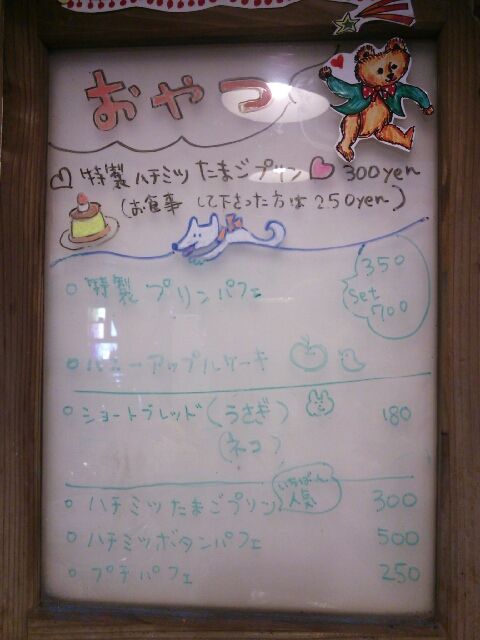 おやつ
♡ 特製 ハチミツ たまごプリン ♡ 300yen
(お食事 して下さった方は 250yen)
○ 特製 プリンパフェ
350
set
700
○ ハニーアップルケーキ
○ ショートブレッド (うさぎ) 180
(ネコ)
いちばん
人気
○ ハチミツたまごプリン 300
○ ハチミツボタンパフェ 500
○ プチパフェ 250